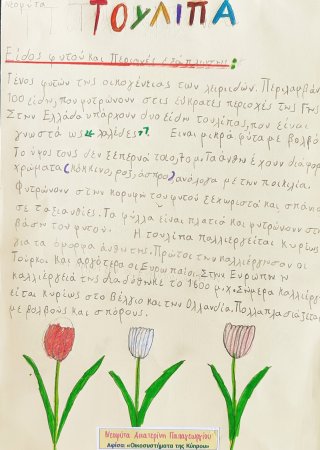 Νεοφύτα
ΤΟΥΛΙΠΑ
Είδος φυτού και Περιοχές εξάπλωσης:
Γένος φυτών της οικογένειας των λειριιδών. Περιλαμβάν
100 είδη, που φυτρώνουν στις εύκρατες περιοχές της Γης
Στην Ελλάδα υπάρχουν δυο είδη τουλίπας, που είναι
γνωστά ως «λαλέδες». Είναι μικρά φυτά με βολβό
Το ύψος τους δεν ξεπερνά τα 50,το μ. Τα άνθη έχουν διάφορα
χρώματα (κόκκινο, ροζ, άσπρο) ανάλογα με την ποικιλία.
Φυτρώνουν στην κορυφή του φυτού ξεχωριστά και σπάνια
σε ταξιανθίες. Τα φύλλα είναι πλατιά και φυτρώνουν στη
βάση του φυτού. Η τουλίπα καλλιεργείται κυρίως
για τα όμορφα άνθη της. Πρώτοι την καλλιέργησαν οι
Τούρκοι και αργότερα οι Ευρωπαίοι. Στην Ευρώπη η
καλλιέργειά της διαδόθηκε το 1600 μ.χ. Σήμερα καλλιεργ
είται κυρίως στο Βέλγιο και την Ολλανδία. Πολλαπλασιάζεται
με βολβούς και σπόρους.
Νεοφύτα Αικατερίνη Παπαγεωργίου
Αφίσα «Οικοσυστήματα της Κύπρου»